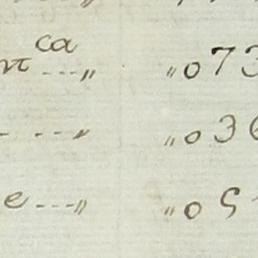 nt ca ---„ „073
- ---„ „036
e ---„ „05